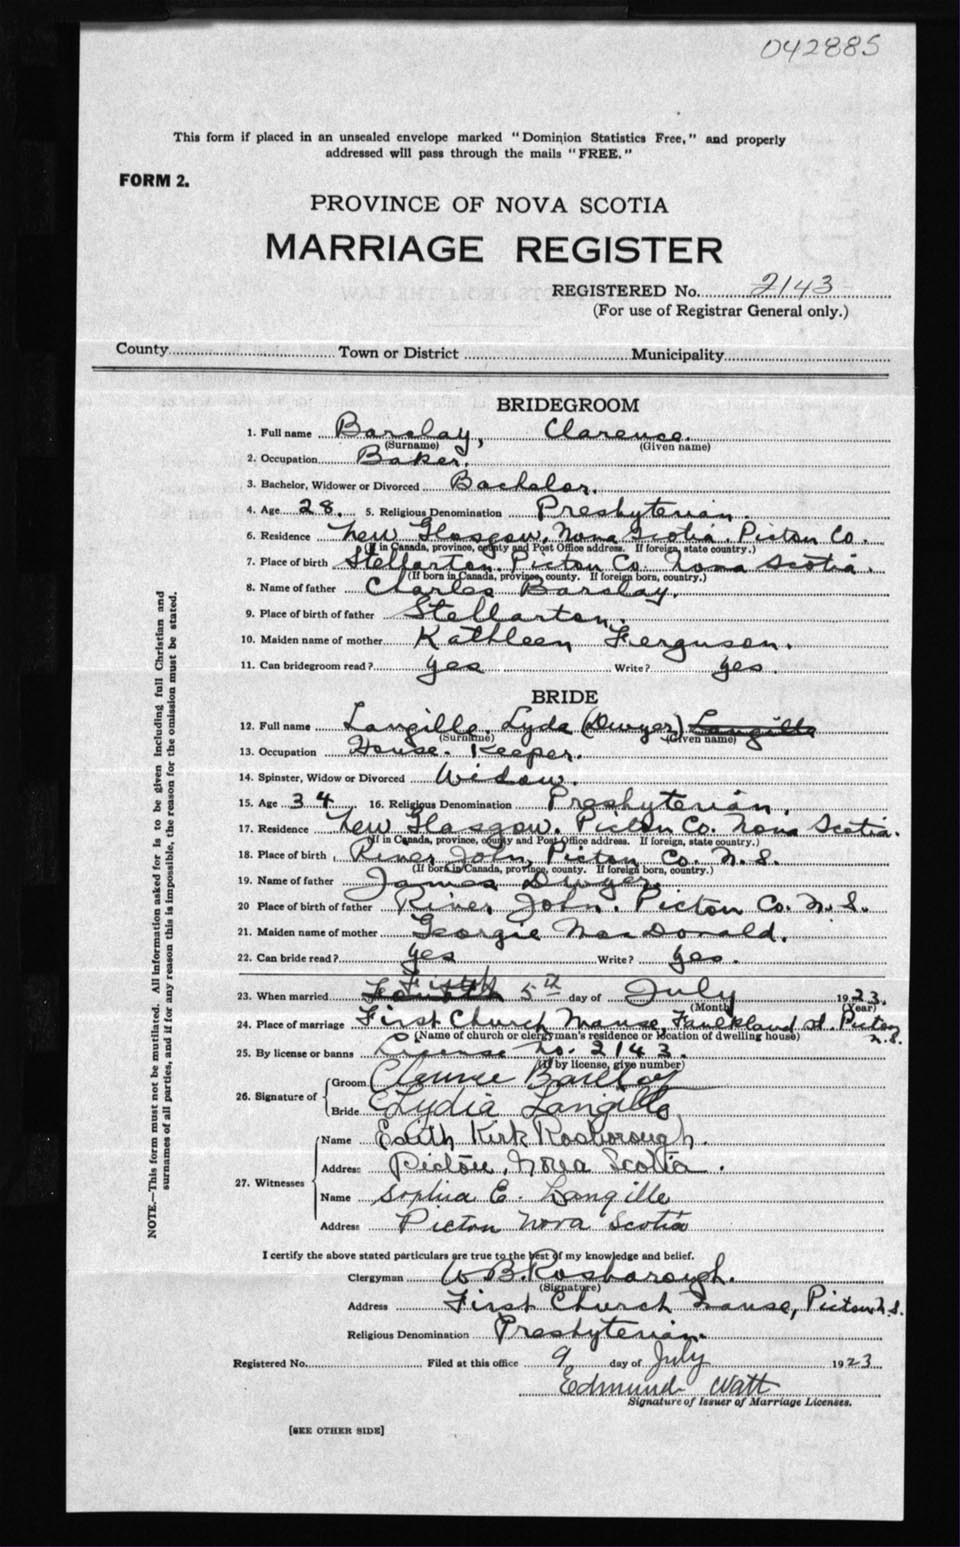 042885
This form if placed in an unsealed envelope marked "Dominion Statistics Free," and properly
addressed will pass through the mails "FREE."
FORM 2.
PROVINCE OF NOVA SCOTIA
MARRIAGE REGISTER
REGISTERED No. 2143
(For use of Registrar General only.)
County Town or District Municipality
BRIDEGROOM
1. Full name Barclay, Clarence.
(Surname) (Given name)
2. Occupation Baker.
3. Bachelor, Widower or Divorced Bachelor.
4. Age 28. 5. Religious Denomination Presbyterian.
6. Residence New Glasgow, Nova Scotia. Picton Co.
(If in Canada, province, county and Post Office address. If foreign, state country.)
7. Place of birth Stellarton. Picton Co. Nova Scotia.
(If born in Canada, province, county. If foreign born, country.)
8. Name of father Charles Barclay.
9. Place of birth of father Stellarton.
10. Maiden name of mother Kathleen Ferguson.
11. Can bridegroom read? yes Write? yes.
BRIDE
12. Full name Langille, Lyda (Dwyer) Langille
(Surname) (Given name)
13. Occupation House-Keeper.
14. Spinster, Widow or Divorced Widow.
15. Age 34 16. Religious Denomination Presbyterian.
17. Residence New Glasgow. Picton Co. Nova Scotia.
(If in Canada, province, county and Post Office address. If foreign, state country.)
18. Place of birth River John, Picton Co. N.S.
(If born in Canada, province, county. If foreign born, country.)
19. Name of father James Dwyer.
20 Place of birth of father River John. Picton Co. N.S.
21. Maiden name of mother Georgie MacDonald.
22. Can bride read? yes Write? yes.
23. When married Fourth Fifth 5th day of July 1923.
(Month) (Year)
24. Place of marriage First Church Manse, Faulkland st. Picton
N.S.
(Name of church or clergyman's residence or location of dwelling house)
25. By license or banns License No. 2143.
(If by license, give number)
26. Signature of
Groom Clarence Barclay
Bride Lydia Langille
27. Witnesses
Name Edith Kirk Rosborough.
Address Pictou, Nova Scotia.
Name Sophia E. Langille
Address Picton Nova Scotia
I certify the above stated particulars are true to the best of my knowledge and belief.
Clergyman W B. Rosborough.
(Signature)
Address First Church Manse, Picton N.S.
Religious Denomination Presbyterian.
Registered No. Filed at this office 9 day of July 1923
Edmund Watt
Signature of Issuer of Marriage Licenses.
[SEE OTHER SIDE]
NOTE.—This form must not be mutilated. All information asked for is to be given including full Christian and
surnames of all parties, and if for any reason this is impossible, the reason for the omission must be stated.